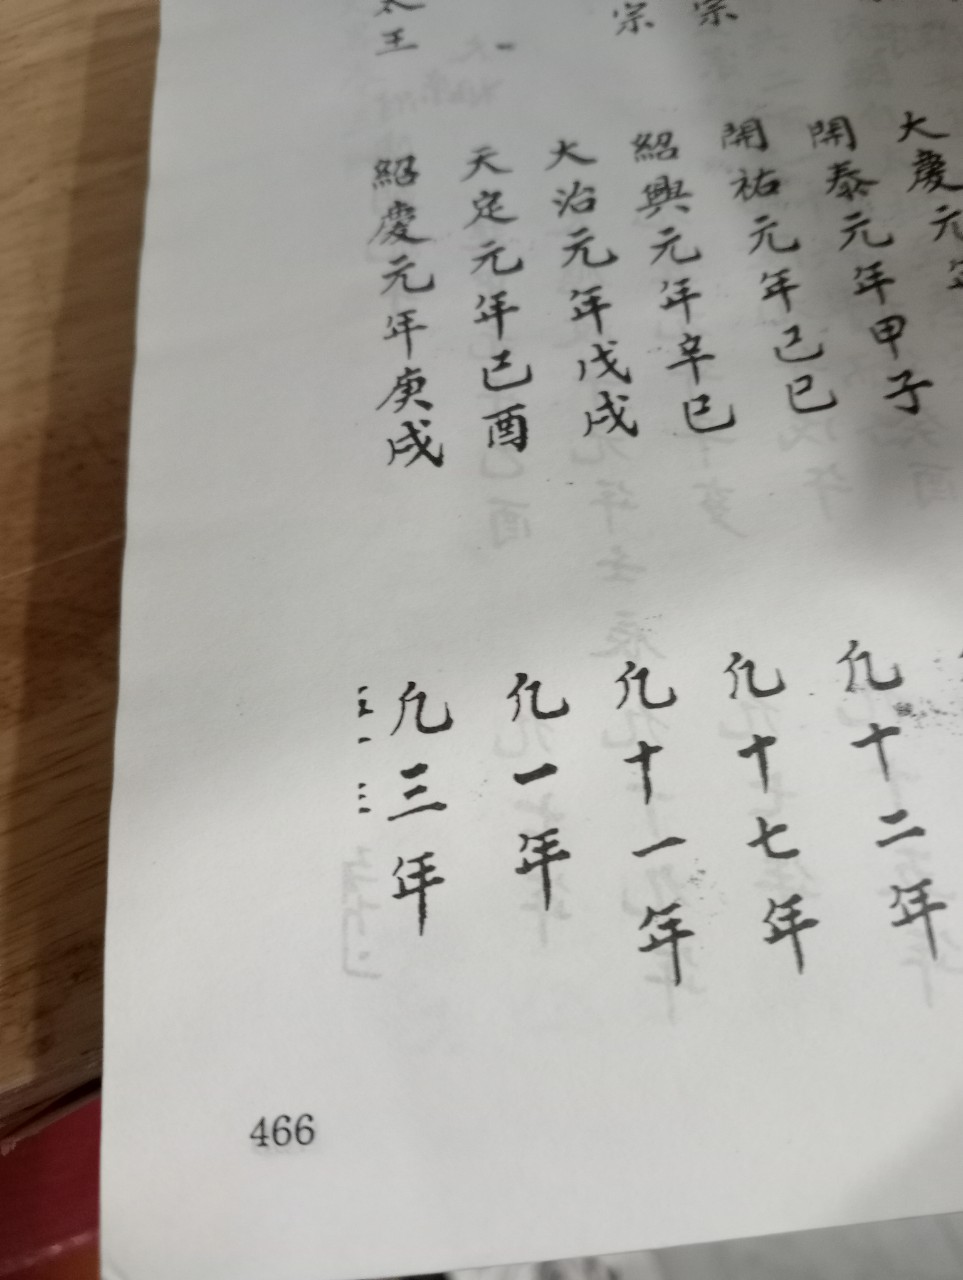 大慶元年
開泰元年甲子 凢十二年
開祐元年己巳 凢十七年
宗 紹興元年辛巳 凢十一年
宗 大治元年戊戌 凢一年
天定元年己酉 凢三年
太王 紹慶元年庚戌
三一三
466